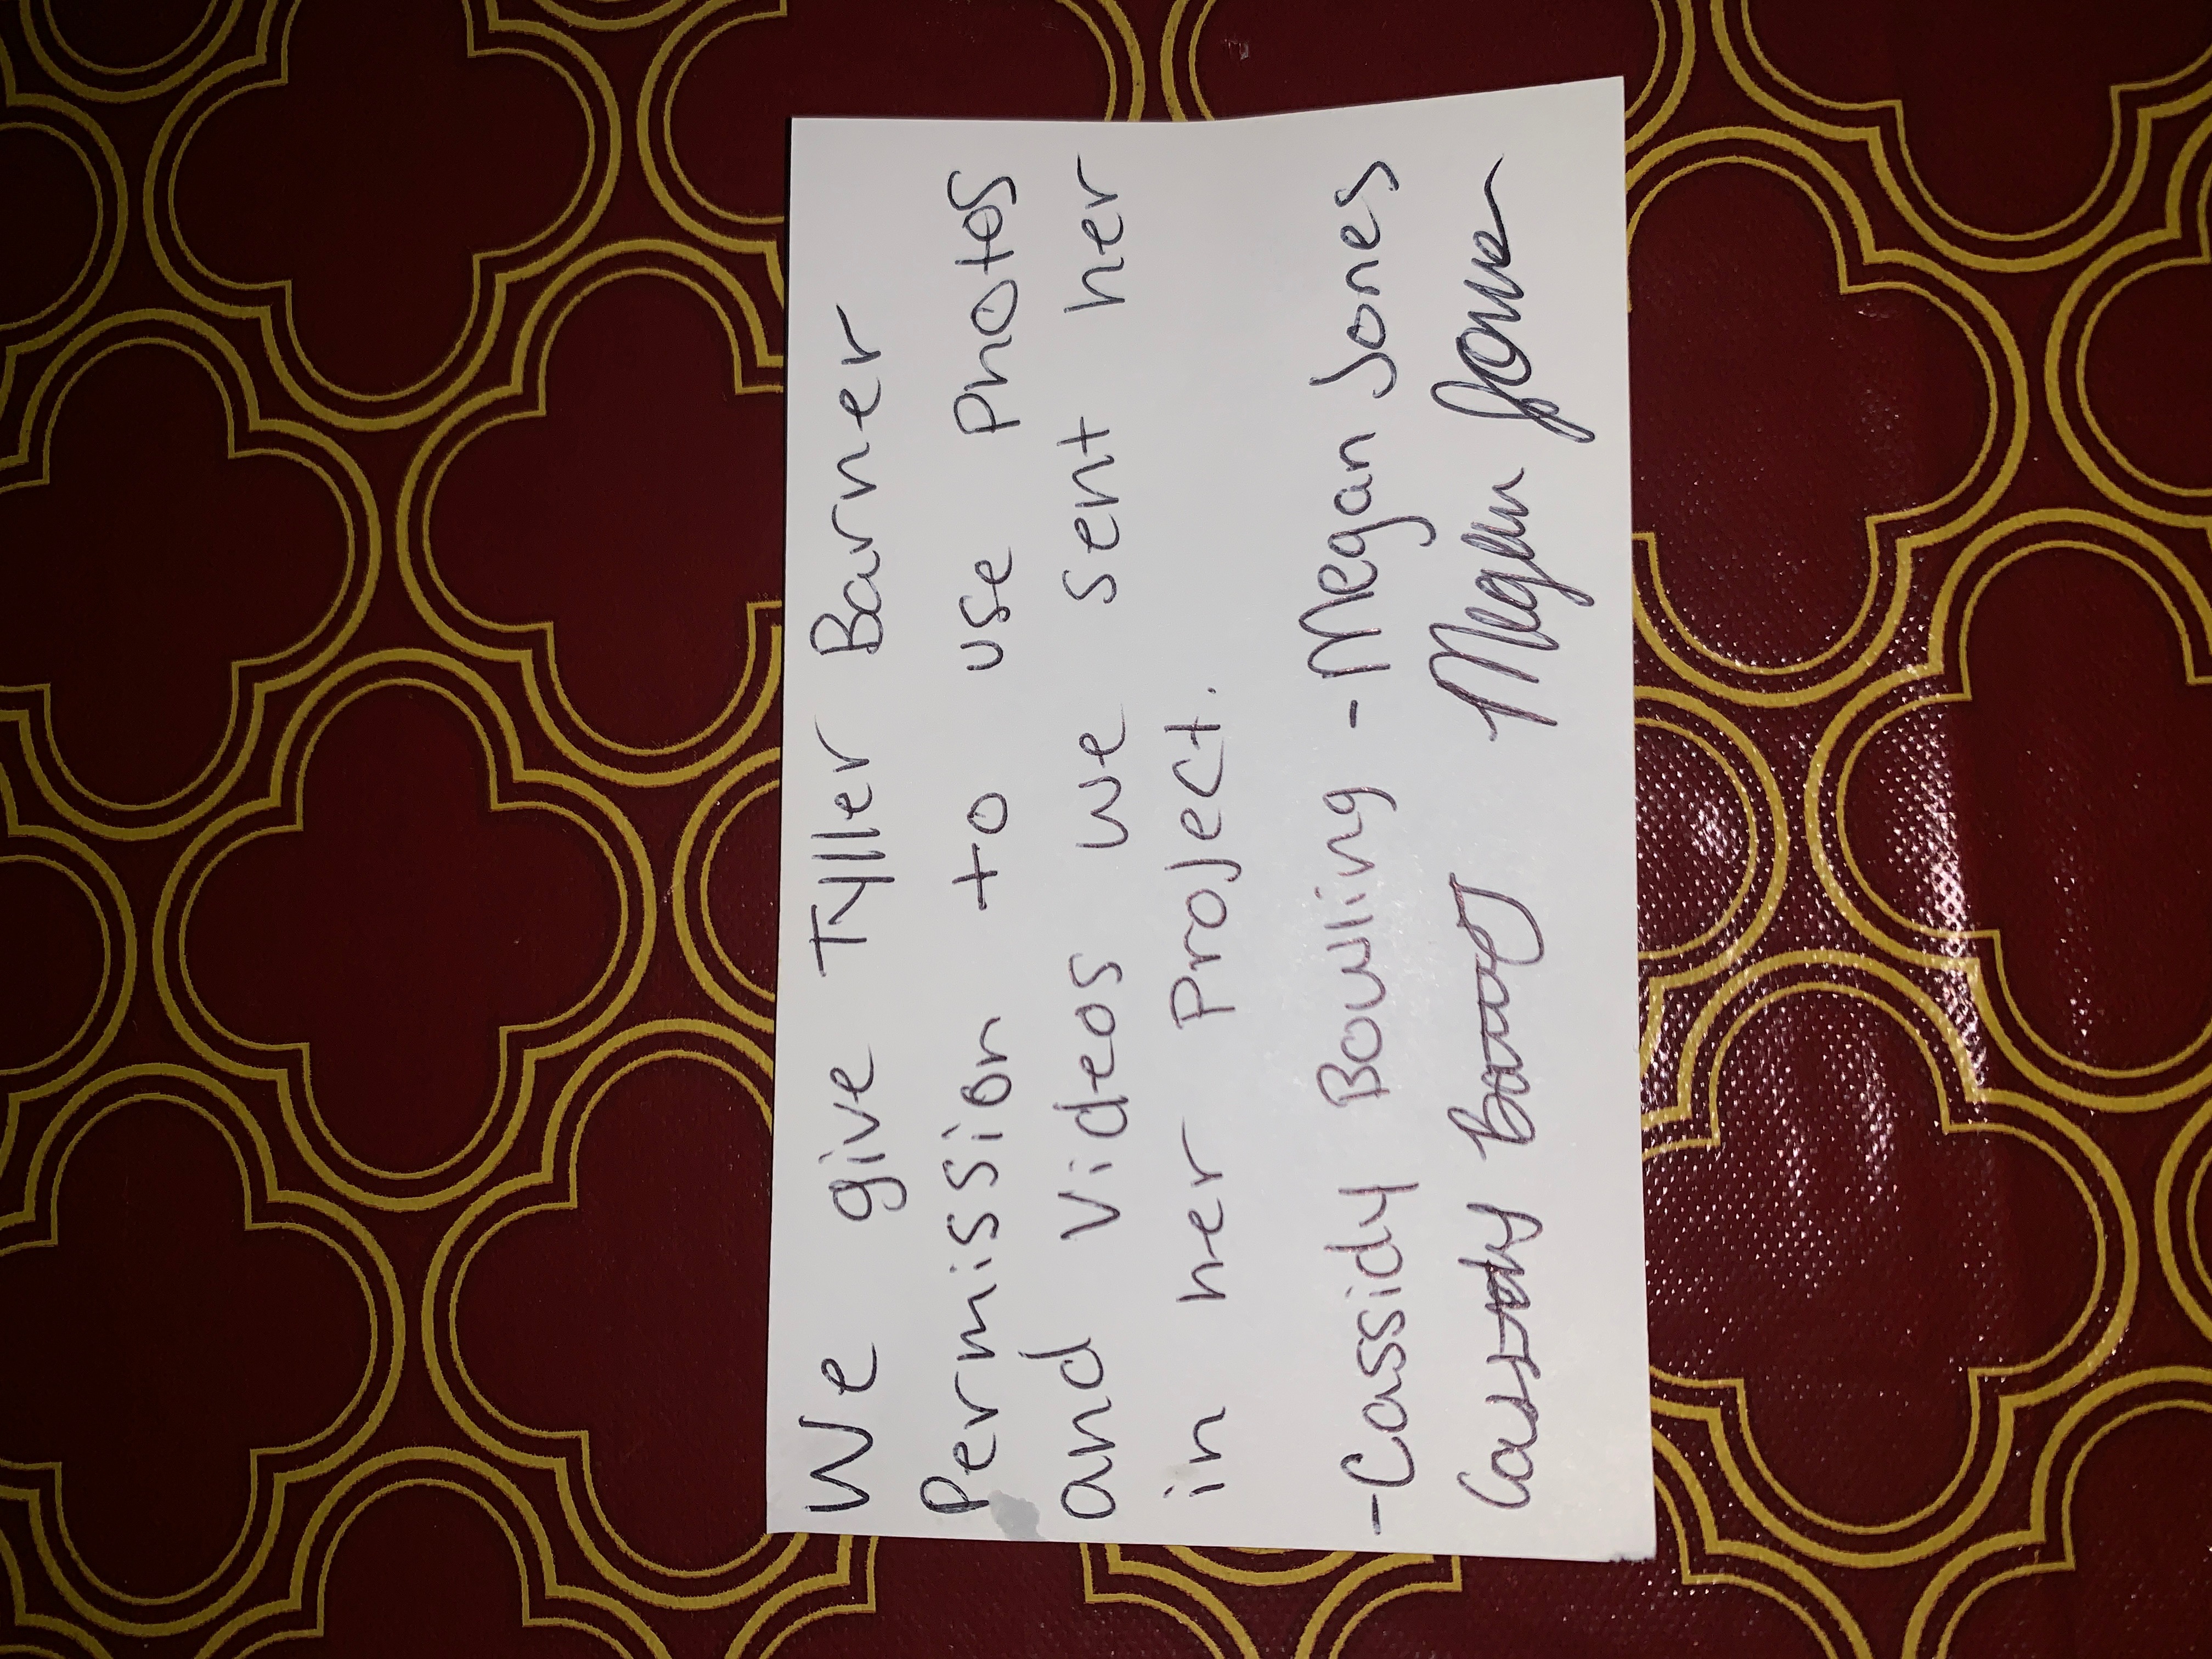 We give Tyller Barner
Permission to use Photos
and Videos we sent her
in her Project.
-Cassidy Bowling -Megan Jones
Cassidy Bowling Megan Jones